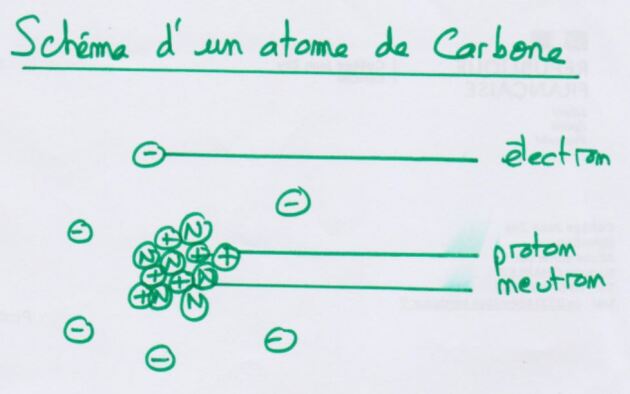 Schéma d'un atome de Carbone
− électron
−
−
N
+
N N + + proton
+ + N neutron
+ N N
− −
−